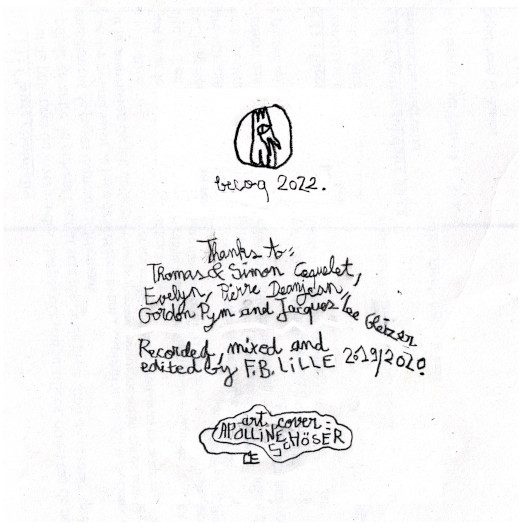 becoq 2022.
Thanks to:
Thomas & Simon Coquelet,
Evelyn, Pierre Deanjean,
Gordon Pym and Jacques
Recorded, mixed and
edited by F.B. LiLLE 2019/2020
art cover:
APOLLiNE
SCHÖSER